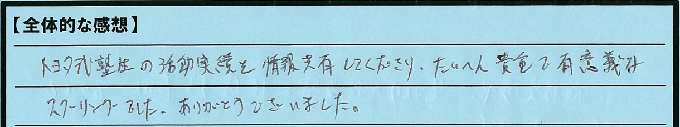 【全体的な感想】
トヨタ式塾生の活動実績を情報共有してくださり、たいへん貴重で有意義な
スクーリングでした。ありがとうございました。